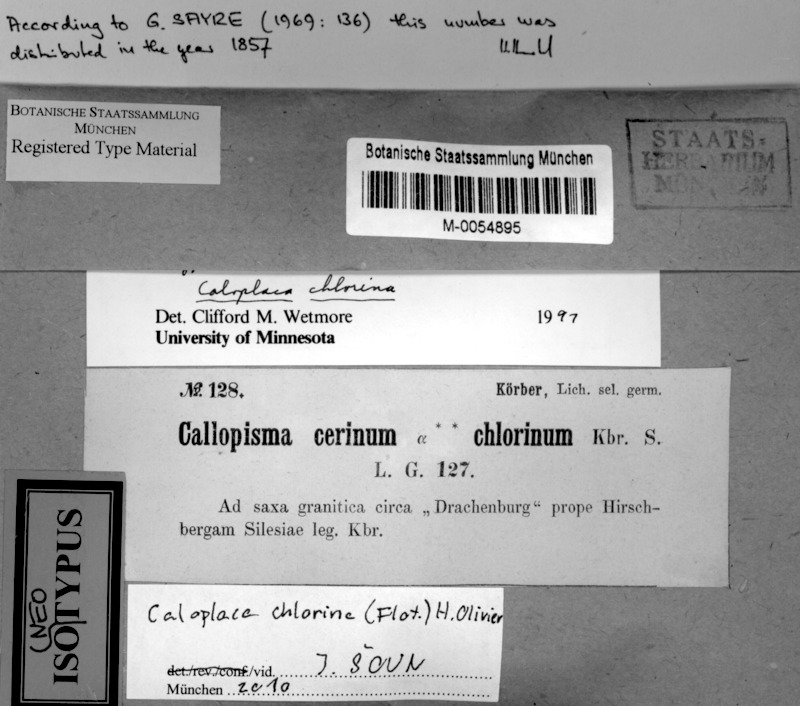 According to G. SAYRE (1969: 136) this number was
distributed in the year 1857
BOTANISCHE STAATSSAMMLUNG
MÜNCHEN
Registered Type Material
Botanische Staatssammlung München
M-0054895
STAATS-
HERBARIUM
MÜNCHEN
Caloplaca chlorina
Det. Clifford M. Wetmore 1997
University of Minnesota
№ 128. Körber, Lich. sel. germ.
Callopisma cerinum α ** chlorinum Kbr. S.
L. G. 127.
Ad saxa granitica circa „Drachenburg“ prope Hirsch-
bergam Silesiae leg. Kbr.
(NEO)
ISOTYPUS
Caloplaca chlorina (Flot.) H. Olivier
det./rev./conf./vid. J. ŠOUN
München 2010